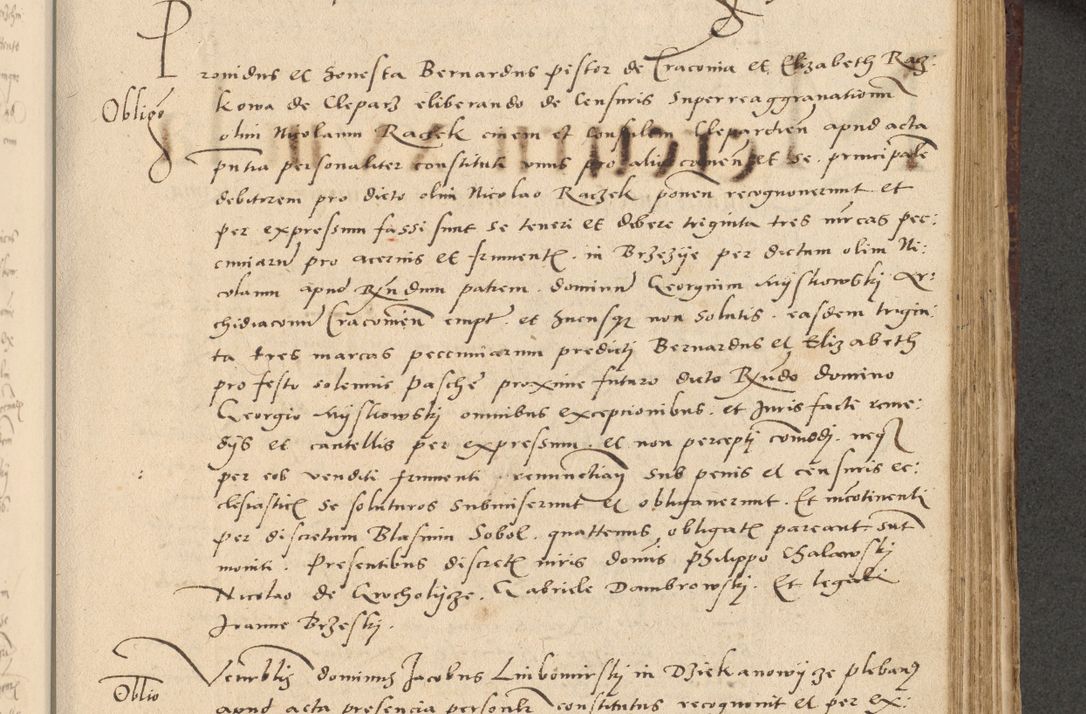 Prouidus et Honesta Bernardus pistor de Cracouia et Elizabeth Racz-
Obligo
kowa de Cleparz eliberando de Censuris superreaggrauationum
olim Nicolaum Raczek ciuem et Consulem Clepardien apud acta
pntia personaliter constituti vnus pro alio comen et se principale
debitorem pro dicto olim Nicolao Raczek ponen recognouerunt et
per expressum fassi sunt se teneri et debere triginta tres mrcas pec-
cuniarum pro aceruis et frumentis in Brzezije per dictum olim Ni-
colaum apud Rndum patrem dominum Georgium Mijskowskij Ar-
chidiaconum Cracouien empt et hucusque non solutis easdem trigin-
ta tres marcas peccuniarum predicti Bernardus et Elizabeth
pro festo solemnis Pasche proxime futuro dicto Rndo domino
Georgio Mijskowskij omnibus exceptionibus et Juris facti reme-
dijs et cautellis per expressum et non percepti comodi neque
per eos venditi frumenti renunctian sub penis et censuris ec-
clesiasticis se soluturos submiserunt et obligauerunt Et incotinenti
per discretum Blasium Sobol quattenus obligatis pareant sunt
moniti Presentibus discretis viris dominis Philippo Chalawskij
Nicolao de Grocholijcze Gabriele Dambrowskij Et legali
Joanne Brzeskij
Venerblis dominus Jacobus Liubomirskij in Dziekanowijcze pleban
Oblio
apud acta presencia personlr constitutus recognouit et per ex-